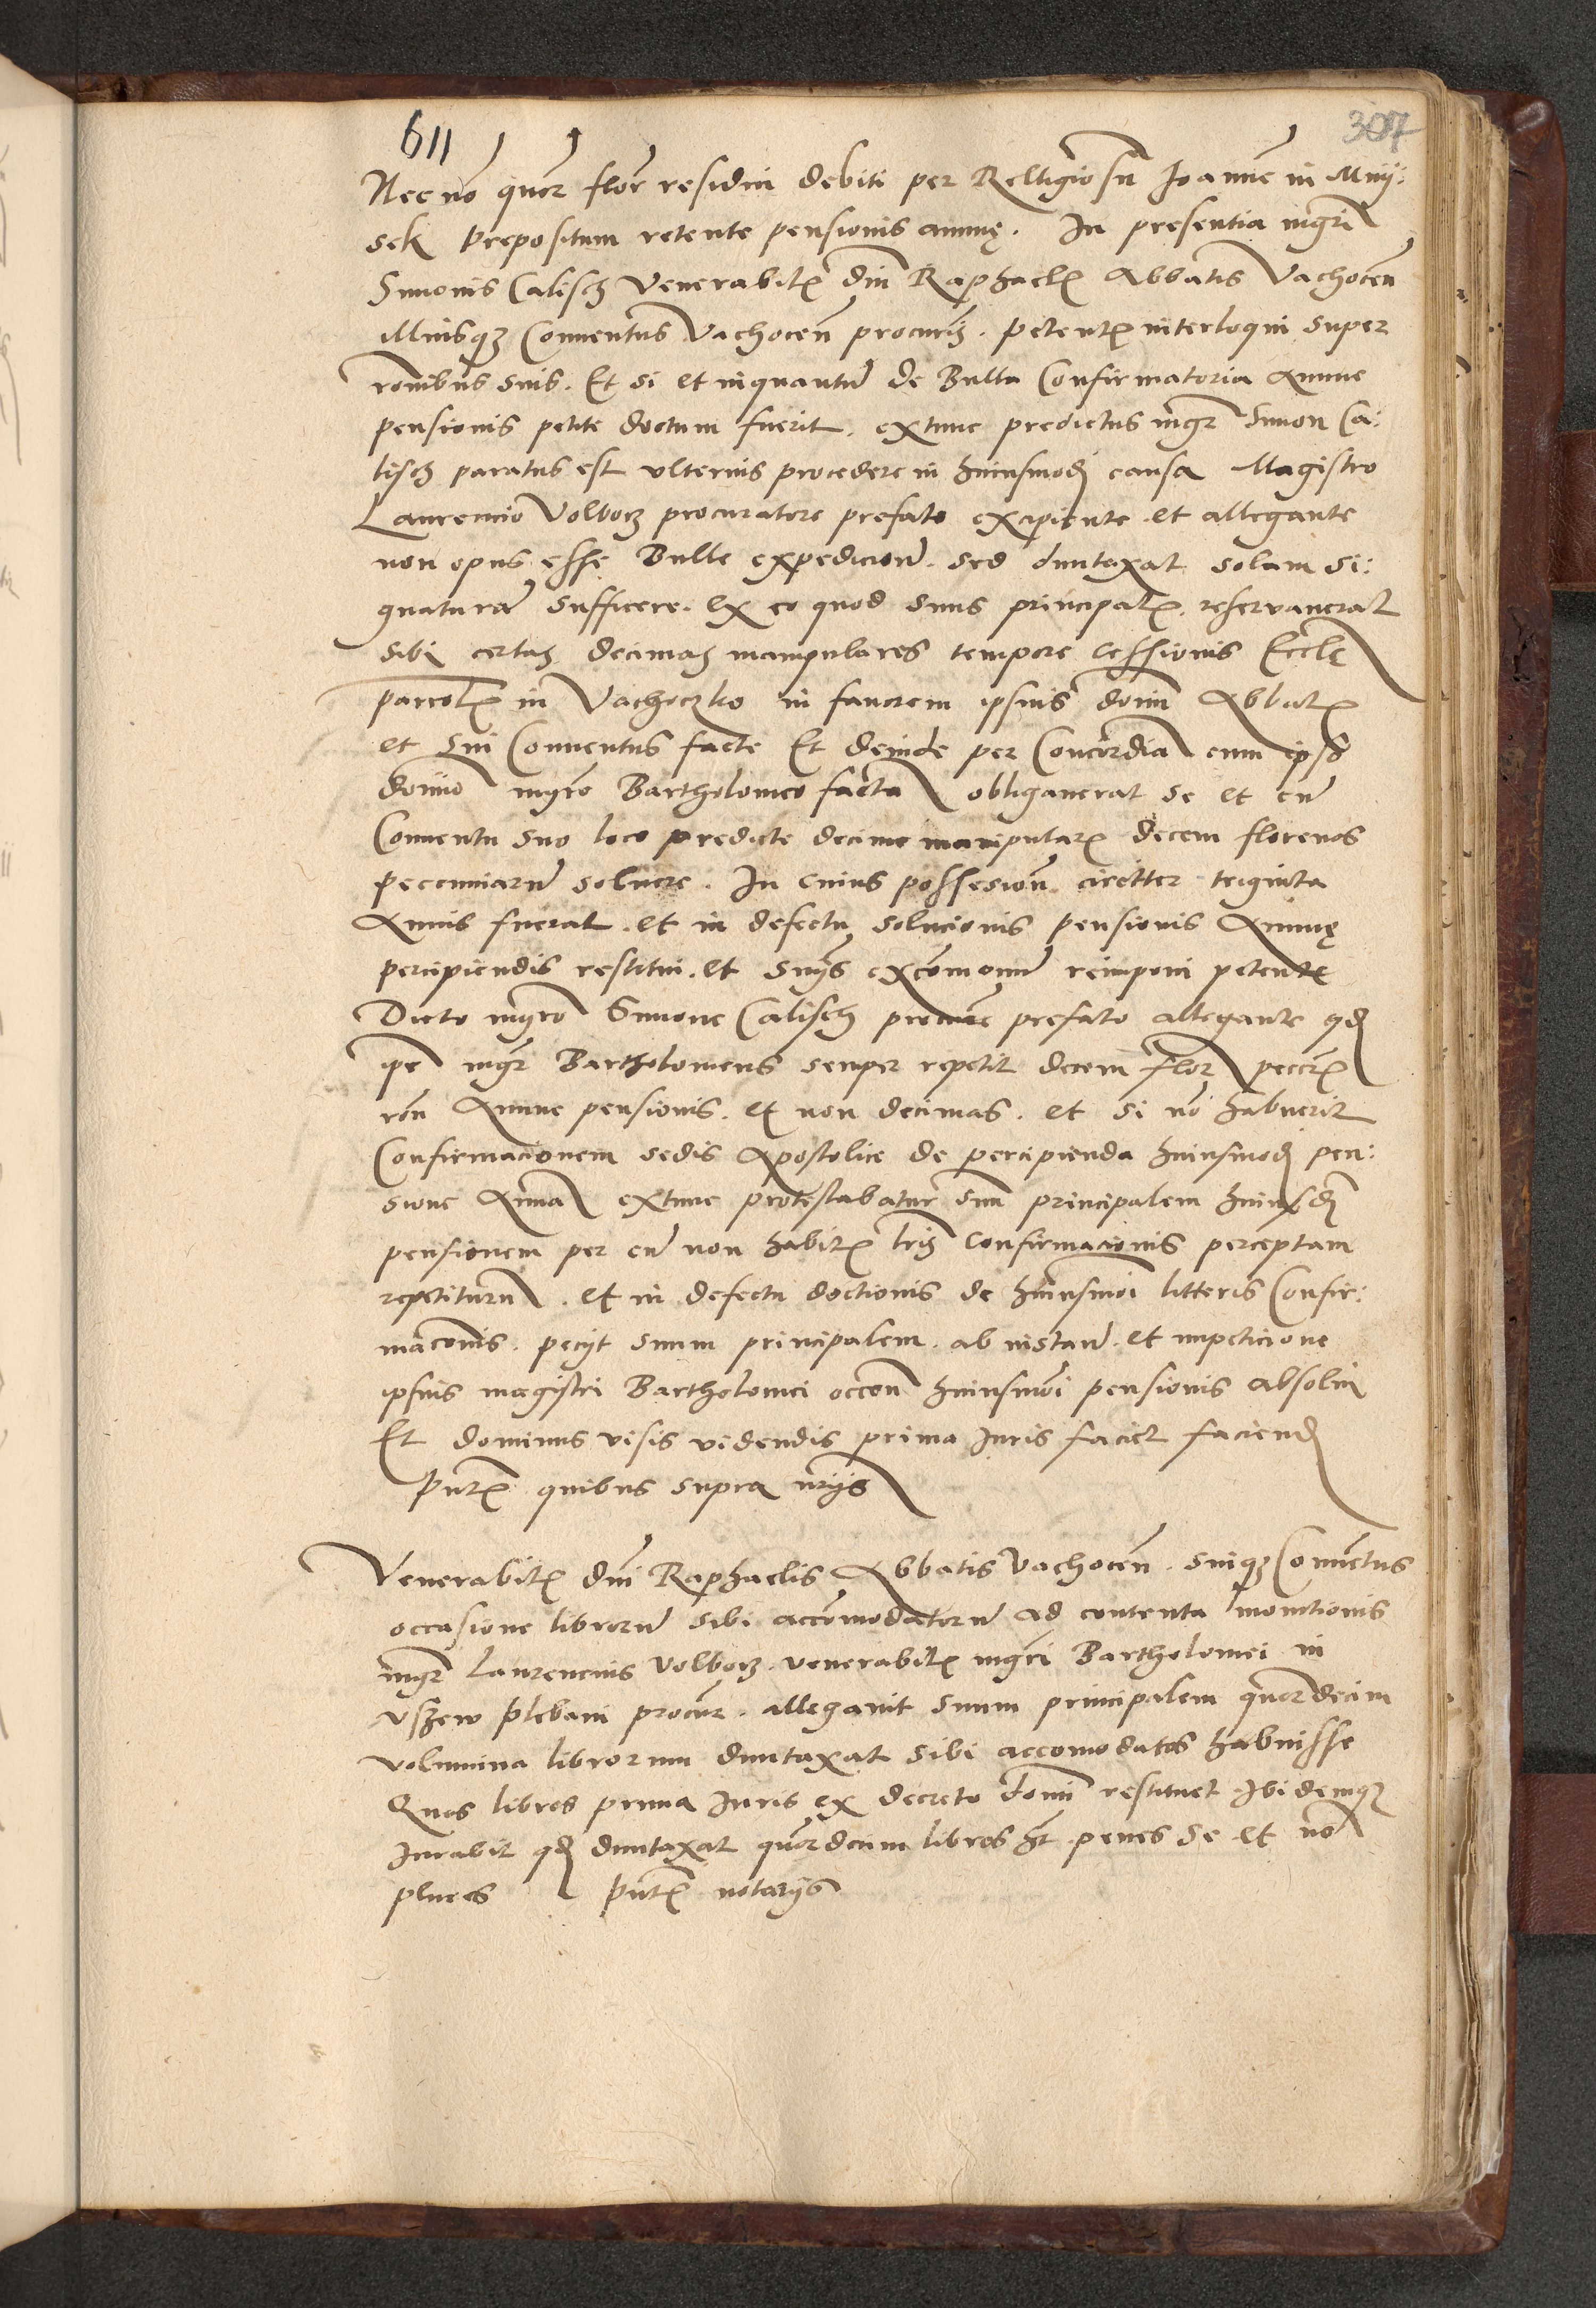 611
307
Nec nō quor̄ flor̄ residui debiti per Religiosū Joannē in Mnij:
sek prepositum retente pensionis annuę. In presentia mgr̄i
Simonis Calisch Venerabil̄ dn̄i Raphael̄ Abbatis Vachoceñ
illiusq₃ Conuentus Vachoceñ procur̄is. petent̄ interloqui super
rōnibus suis. Et si et inquantū de Bulla Confirmatoria Annue
pensionis petite doctum fuerit. extunc predictus mgr̄ Simon Ca:
lisch paratus est ulterius procedere in huiusmodi causa Magistro
Laurencio Volborz procuratore prefato excipiente et allegante
non opus esse Bulle expedicioñ. sed duntaxat solam si:
gnaturā sufficere. ex eo quod suus principal̄. reservauerat
sibi certas decimas manipulares tempore cessionis Eccl̄ę
parrol̄ in Vachoczko in fauorem ipsius domi Abbat̄
et sui Conuentus facte Et deinde per Concordiā cum ipso
domīo mgr̄o Bartholomeo factā obligauerat se et cū
Conuentu suo loco predicte decime manipular̄ decem florenos
pecuniarū soluere. In cuius possesioñ circiter triginta
Annis fuerat. et in defectu solucionis pensionis Annuę
percipiendis restitui. et suijs excōmonū reimponi petente
Dicto mgr̄o Simone Calisch procur̄e prefato allegante qđ
ipē mgr̄ Bartholomeus semper repetit decem flor̄ peccr̄
rōn Annue pensionis. et non decimas. et si nō habuerit
Confirmacionem sedis Apostolice de percipienda huiusmodi pen:
sione Annuā extunc protestabatur suū principalem huiusđi
pensionem per eū non habit̄ lr̄is Confirmacionis perceptam
repetiturū. et in defectu doctionis de huiusmoi litteris Confir:
maconis. pecijt suum principalem. ab instañ. et impeticione
ipsius magistri Bartholomei occoñ huiusmōi pensionis absolui
Et dominus visis videndis prima Juris faciet faciend̄
Pn̄t̄ quibus supra nr̄ijs
Venerabil̄ dn̄i Raphaelis Abbatis Vachoceñ. suiq₃ Conuētus
occasione librorū sibi accōmodatorū ad contenta monitionis
mgr̄ Laurencius Volborz. venerabil̄ mgr̄i Bartholomei in
Uszew plebani procur̄. allegauit suum principalem quordecim
volumina librorum duntaxat sibi accomodatos habuisse
Quos libros prima Juris ex decreto domi restituet Ibidemq₃
Jurabit qđ duntaxat quordecim libros h̄t penes se et nō
plures pn̄t̄ notarijs